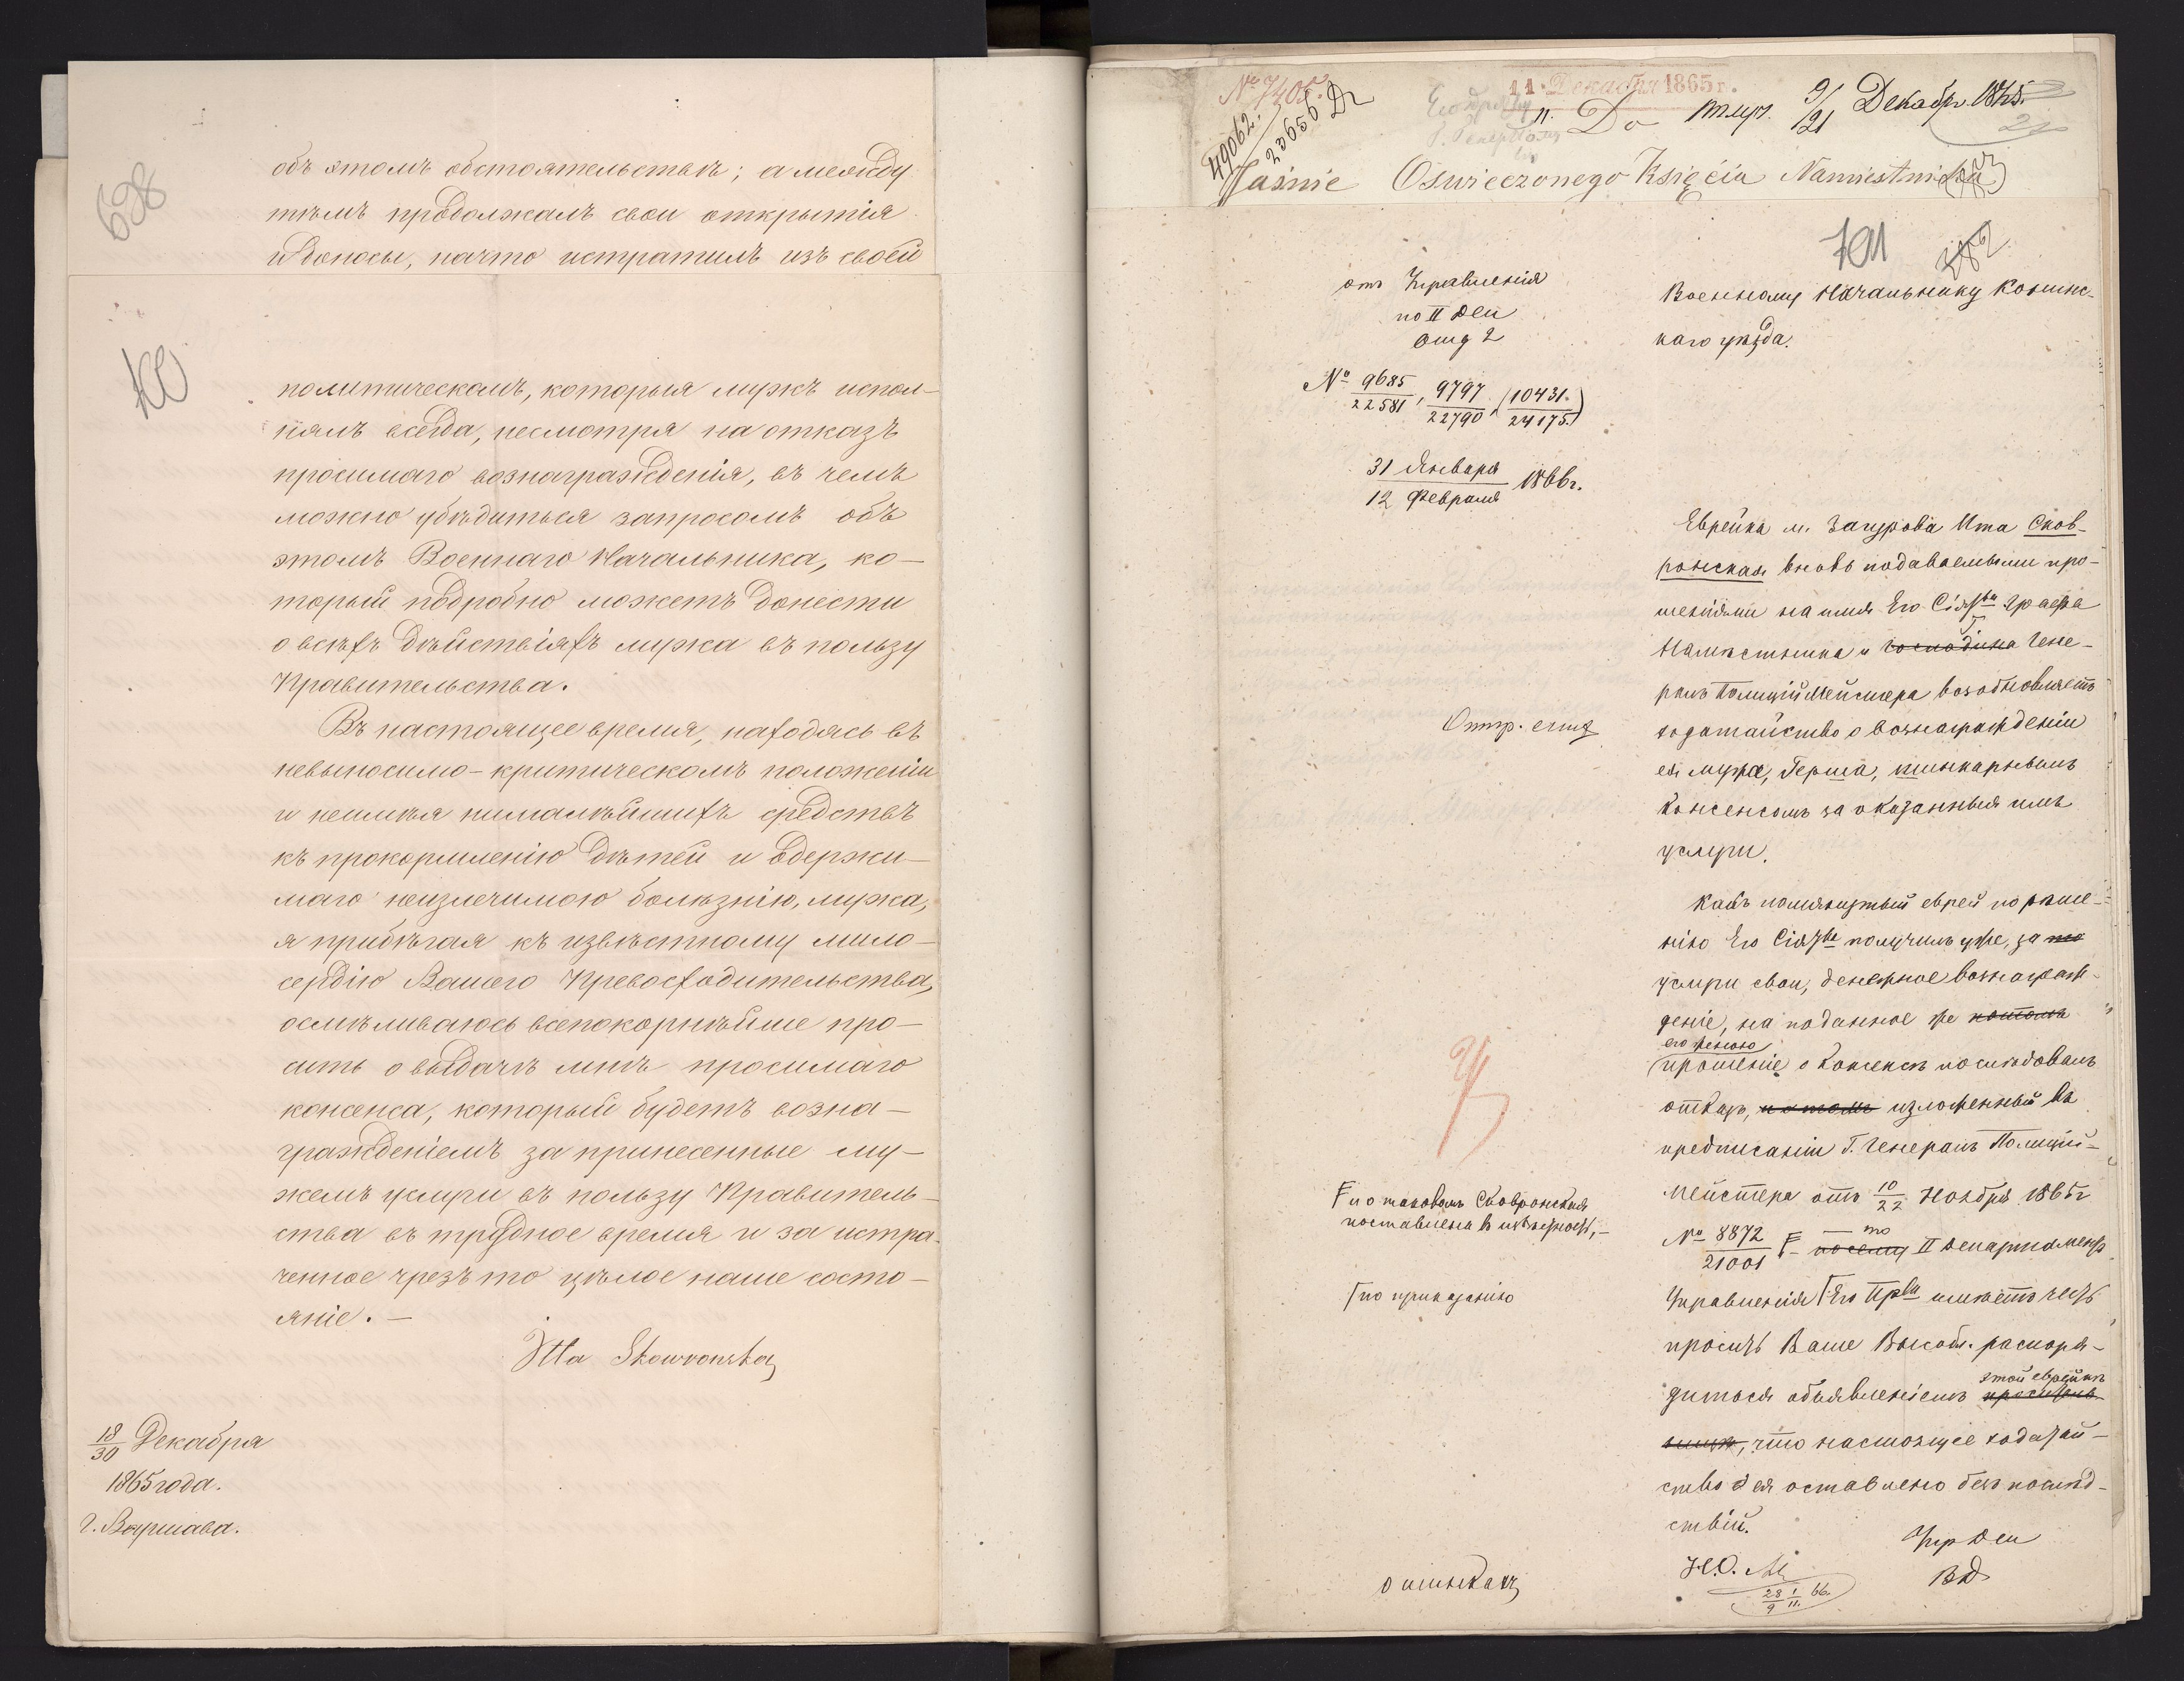 698
объ этомъ обстоятельствѣ; а между
тѣмъ продолжалъ свои открытія
и доносы, на что истратилъ изъ своей
700
политическомъ, которыя мужъ испол-
нялъ всегда, несмотря на отказъ
просимаго вознагражденія, въ чемъ
можно убѣдиться запросомъ объ
этомъ Военнаго Начальника, ко-
торый подробно можетъ донести
о всѣхъ дѣйствіяхъ мужа въ пользу
Правительства.
Въ настоящее время, находясь въ
невыносимо-критическомъ положеніи
и неимѣя нималѣйшихъ средствъ
къ прокормленію дѣтей и одержи-
маго неизлечимою болѣзнію, мужа,
я прибѣгая къ извѣстному мило-
сердію Вашего Превосходительства,
осмѣливаюсь всепокорнѣйше про-
сить о выдачѣ мнѣ просимаго
консенса, который будетъ возна-
гражденіемъ за принесенные му-
жемъ услуги въ пользу Правитель-
ства въ трудное время и за истра-
ченное чрезъ то цѣлое наше состо-
яніе. —
Itta Skowronska
18/30 Декабря
1865 года.
г. Варшава.
№ 7405.
11 Декабря 1865 г.
49062.
23656
Do
9/21 Декабр. 1865.
Jaśnie Oświeczonego Księcia Namiestnika
701
отъ Управленія
по II Деп
Отд 2
№ 9685/22581, 9797/22790, (10431./24175.)
31 Января/12 Февраля 1866 г.
Военному Начальнику Конинс-
каго уѣзда.
Еврейка м. Загурова Ита Сков-
ронская вновь подаваемыми про-
шеніями на имя Его Сіяства Графа
Намѣстника и Господина Гене-
ралъ Полиціймейстера возобновляетъ
ходатайство о вознагражденіи
ея мужа, Герша, шинкарнымъ
консенсомъ за оказанныя имъ
услуги.
Отпр. есть
Какъ помянутый еврей по рѣше-
нію Его Сіятва получилъ уже, за то
услуги свои, денежное вознаграж-
деніе, на поданное же потомъ
его женою
прошеніе о консенсѣ послѣдовалъ
отказъ, изложенный въ
предписаніи Г. Генералъ Полицій-
мейстера отъ 10/22 Ноября 1865 г
№ 8872/21001 то по сему II Департаментъ
и о таковомъ Сковронская
поставлена въ извѣстность,-
по приказанію
Управленія Его Прва имѣетъ честь
просить Ваше Высокобл. распоря-
этой еврейкѣ
диться объявленіемъ
что настоящее ходатай-
ство ея оставлено безъ послѣд-
ствій.
Упр Деп
Н.О.
ВД
28/9 I/II. 66.